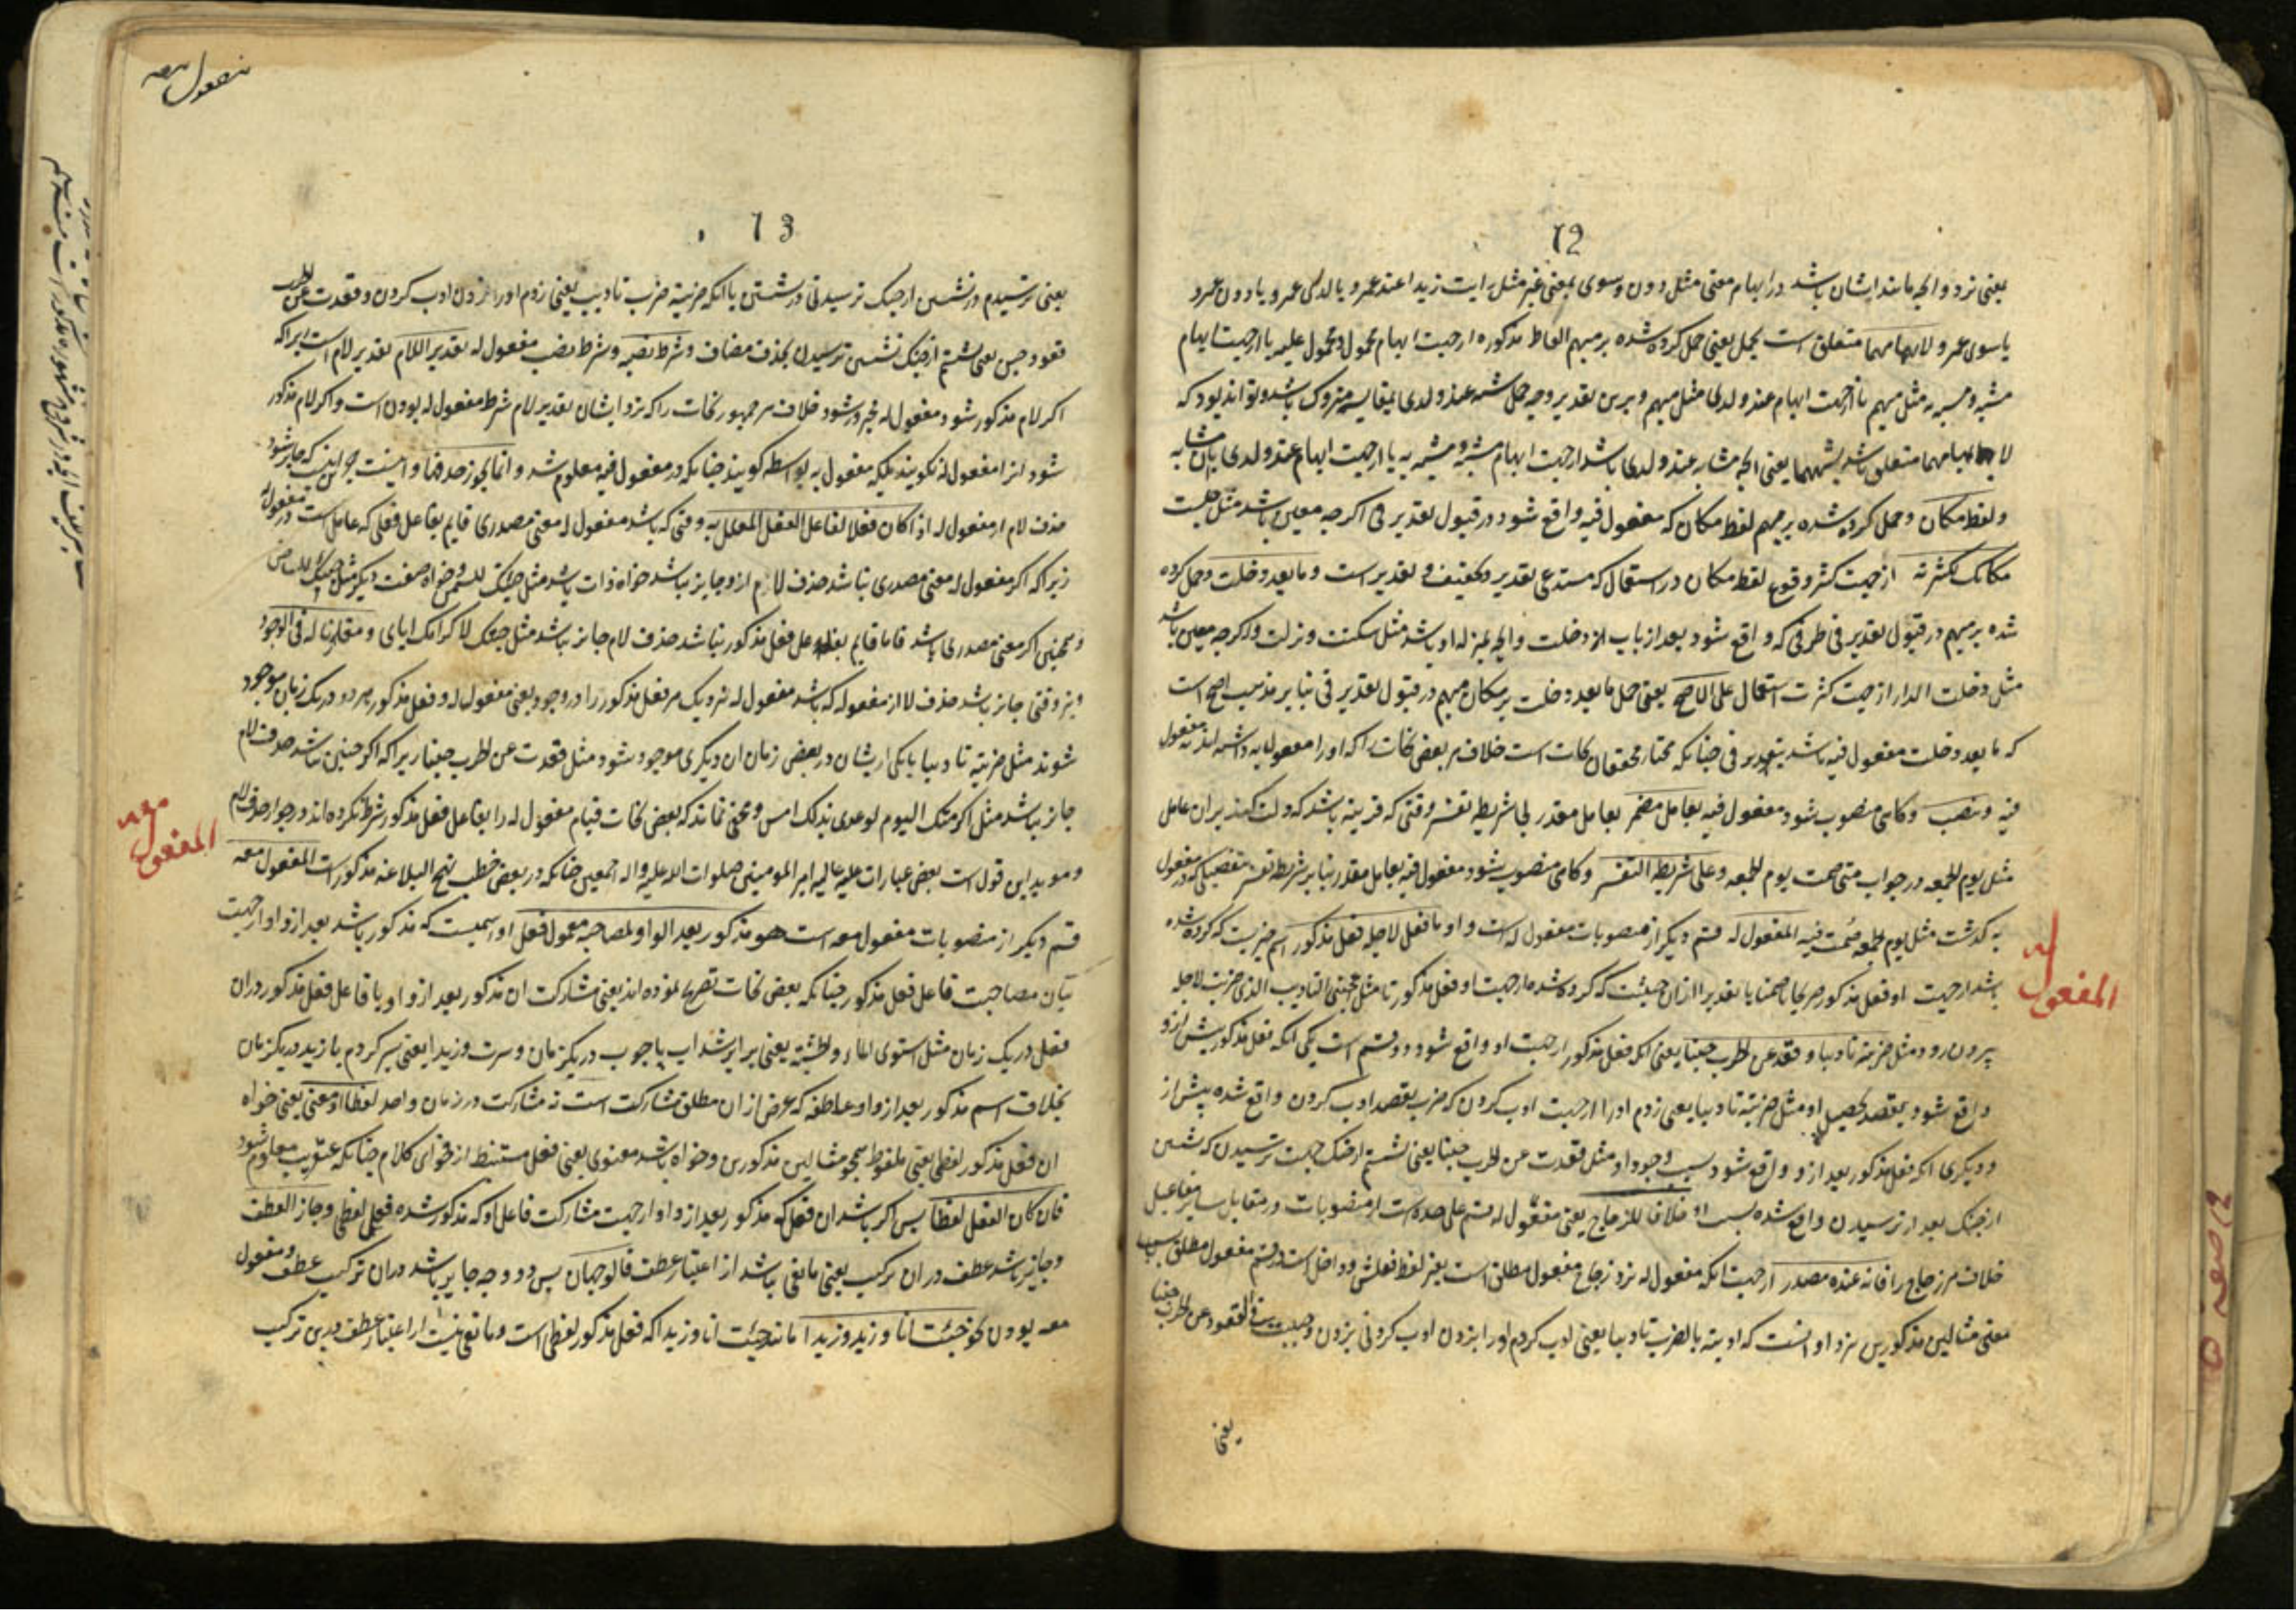 12
یعنی نزد و انچه مانند ایشان باشد در ابهام معنی مثل دون و سوی بمعنی غیر مثل رایت زیدا عند عمرو یا لدی عمرو یا دون عمرو
یا سوی عمرو و لابهامهما متعلق است بحمل یعنی حمل کرده شده بر مبهم الفاظ مذکوره از جهت ابهام محمول و محمول علیه یا از جهت ابهام
مشبه و مشبه به مثل مبهم یا از جهت ابهام عند و لدی مثل مبهم و برین تقدیر وجه حمل شبه عند و لدی بمقایسه متروک باشد و تواند بود که
لابهامهما متعلق باشد بشبههما یعنی انچه مشابه عند و لدی باشد از جهت ابهام مشبه و مشبه به یا از جهت ابهام عند و لدی
و لفظ مکان و حمل کرده شده بر مبهم لفظ مکان که مفعول فیه واقع شود در قبول تقدیر فی اگرچه معین باشد مثل جلست
مکانک لکثرته از جهت کثرت وقوع لفظ مکان در استعمال که مستدعی تقدیر و تخفیف و تقدیر است و ما بعد دخلت و حمل کرده
شده بر مبهم در قبول تقدیر فی ظرفی که واقع شود بعد از باب دخلت و انچه بمنزله او باشد مثل سکنت و نزلت و اگرچه معین باشد
مثل دخلت الدار از جهت کثرت استعمال علی الاصح یعنی حمل ما بعد دخلت بر مکان مبهم در قبول تقدیر فی بنابر مذهب اصح است
که ما بعد دخلت مفعول فیه باشد بتقدیر فی چنانکه مختار محققان نحات است خلاف مر بعض نحات را که او را مفعول به داشته اند نه مفعول
فیه و ینصب و گاهی منصوب شود مفعول فیه بعامل مضمر بعامل مقدر بلا شریطه تفسیر وقتی که قرینه باشد که دلالت کند بر ان عامل
مثل یوم الجمعه در جواب متی صمت یوم الجمعه و علی شریطه التفسیر و گاهی منصوب شود مفعول فیه بعامل مقدر بنابر شریطه تفسیر بتفصیلی که در مفعول
به گذشت مثل یوم الجمعه صمت فیه المفعول له قسم دیگر از منصوبات مفعول له است و او ما فعل لاجله فعل مذکور اسم چیزیست که کرده شده
باشد از جهت او فعل مذکور صریحا یا ضمنا یا تقدیرا از ان حیثیت که کرده شده از جهت او فعل مذکور تا مثل اعجبنی التادیب الذی ضربت لاجله
بیرون رود مثل ضربته تادیبا و قعدت عن الحرب جبنا یعنی انکه فعل مذکور از جهت او واقع شود دو قسم است یکی انکه فعل مذکور پیش از و
واقع شود بقصد تحصیل او مثل ضربته تادیبا یعنی زدم او را از جهت ادب کردن که ضرب بقصد ادب کردن واقع شده پیش از
و دیگری انکه فعل مذکور بعد از و واقع شود بسبب وجود او مثل قعدت عن الحرب جبنا یعنی نشستم از جنگ جهت ترسیدن که نشستن
از جنگ بعد از ترسیدن واقع شده بسبب او خلافا للزجاج یعنی مفعول له قسم علی حده است از منصوبات در مقابل سایر مفاعیل
خلاف مر زجاج را فانه عنده مصدر از جهت انکه مفعول له نزد زجاج مفعول مطلق است بغیر لفظ فعلش و داخل است در قسم مفعول مطلق
معنی مثالین مذکورین نزد او انست که ادبته بالضرب تادیبا یعنی ادب کردم او را بزدن ادب کردنی بزدن و جبنت فی القعود عن الحرب جبنا
یعنی
المفعول له
13
یعنی ترسیدم در نشستن از جنگ ترسیدنی در نشستن یا انکه ضربته ضرب تادیب یعنی زدم او را زدن ادب کردن و قعدت عن الحرب
قعود جبن یعنی نشستم از جنگ نشستن ترسیدن بحذف مضاف و شرط نصبه و شرط نصب مفعول له تقدیر اللام تقدیر لام است زیراکه
اگر لام مذکور شود مفعول له مجرور شود خلاف مر جمهور نحات را که نزد ایشان تقدیر لام شرط مفعول له بودن است و اگر لام مذکور
شود انرا مفعول له نگویند بلکه مفعول به بواسطه گویند چنانکه در مفعول فیه معلوم شد و انما یجوز حذفها و اینست جز این که جایز شود
حذف لام از مفعول له اذا کان فعلا لفاعل الفعل المعلل به وقتی که باشد مفعول له معنی مصدری قایم بفاعل فعلی که عامل است در مفعول له
زیراکه اگر مفعول له معنی مصدری نباشد حذف لام از و جایز نباشد خواه ذات باشد مثل جئتک للسمن و خواه صفت دیگر مثل جئتک للبیاض
و همچنین اگر معنی مصدری باشد قاما قایم بفاعل فعل مذکور نباشد حذف لام جایز نباشد مثل جئتک لاکرامک ایای و مقارنا له فی الوجود
و نیز وقتی جایز باشد حذف لام از مفعول له که باشد مفعول له نزدیک مر فعل مذکور را در وجود یعنی مفعول له و فعل مذکور هر دو در یک زمان موجود
شوند مثل ضربته تادیبا یا یکی از ایشان در بعض زمان ان دیگری موجود شود مثل قعدت عن الحرب جبنا زیراکه اگر چنین نباشد حذف لام
جایز نباشد مثل اکرمتک الیوم لوعدی بذلک امس و مخفی نماند که بعض نحات قیام مفعول له را بفاعل فعل مذکور شرط نکرده اند در جواز حذف لام
و موید این قول است بعض عبارات علیه عالیه امیر المومنین صلوات الله علیه و اله اجمعین چنانکه در بعض خطب نهج البلاغه مذکور است المفعول معه
قسم دیگر از منصوبات مفعول معه است هو مذکور بعد الواو لمصاحبه معمول فعل او اسمیست که مذکور باشد بعد از واو از جهت
بیان مصاحبت فاعل فعل مذکور چنانکه بعض نحات تصریح نموده اند یعنی مشارکت ان مذکور بعد از واو با فاعل فعل مذکور در ان
فعل در یک زمان مثل استوی الماء و الخشبه یعنی برابر شد اب با چوب در یکزمان و سرت و زیدا یعنی سیر کردم با زید در یکزمان
بخلاف اسم مذکور بعد از واو عاطفه که غرض از ان مطلق مشارکت است نه مشارکت در زمان واحد لفظا او معنی یعنی خواه
ان فعل مذکور لفظی یعنی ملفوظ همچو مثالین مذکورین و خواه باشد معنوی یعنی فعل مستنبط از فحوای کلام چنانکه عنقریب معلوم شود
فان کان الفعل لفظا پس اگر باشد ان فعل که مذکور بعد از واو از جهت مشارکت فاعل او که مذکور شده فعل لفظی و جاز العطف
و جایز باشد عطف در ان ترکیب یعنی مانعی نباشد از اعتبار عطف فالوجهان پس دو وجه جایز باشد در ان ترکیب عطف و مفعول
معه بودن نحو جئت انا و زید و زیدا مانند جئت انا و زیدا که فعل مذکور لفظی است و مانعی نیست از اعتبار عطف درین ترکیب
المفعول معه
مفعول معه